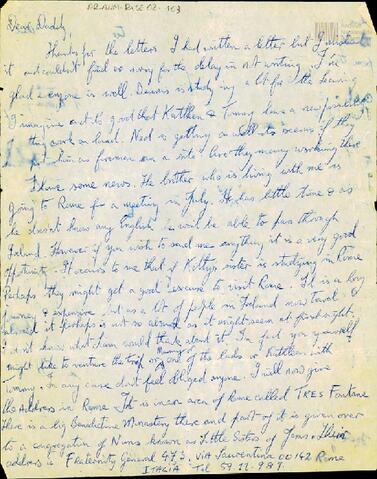 AR-ANM-BASE 02-103
Dear Daddy
Thanks for the letters I had written a letter but I mislaid
it and couldn't find so sorry for the delay in not writing. I'm
glad everyone is well. Dennis is studying a lot for the leaving
I imagine. It is good that Kathleen & Tommy have a new
they work so hard. Ned is getting on well it seems if they
put him as foreman on a site. Are there many working there
I have some news. The brother who is living with me is
going to Rome for a meeting in July. He has little time & as
he doesn't know any English he won't be able to pass through
Ireland. However if you wish to send me anything it is a very good
opportunity. It occurs to me that if Kitty's sister is studying in Rome
Perhaps they might get a good excuse to visit Rome. It is a long
journey & expensive but as a lot of people in Ireland now travel
abroad it perhaps is not so as it might seem at first sight.
I don't know what Mam would think about it. In fact you yourself
might like to venture the trip or one of the lads or Kathleen with
Tommy. In any case don't feel obliged anyone. I will now give
the address in Rome. It is in an area of Rome called TRES FONTANE
there is a big Benedictine Monastery there and part of it is given over
to a congregation of Nuns known as Little Sisters of Jesus. Their
address is Fraternity General 473. VIA Laurentina 00142 Rome
ITALIA Tel 59.12.989.